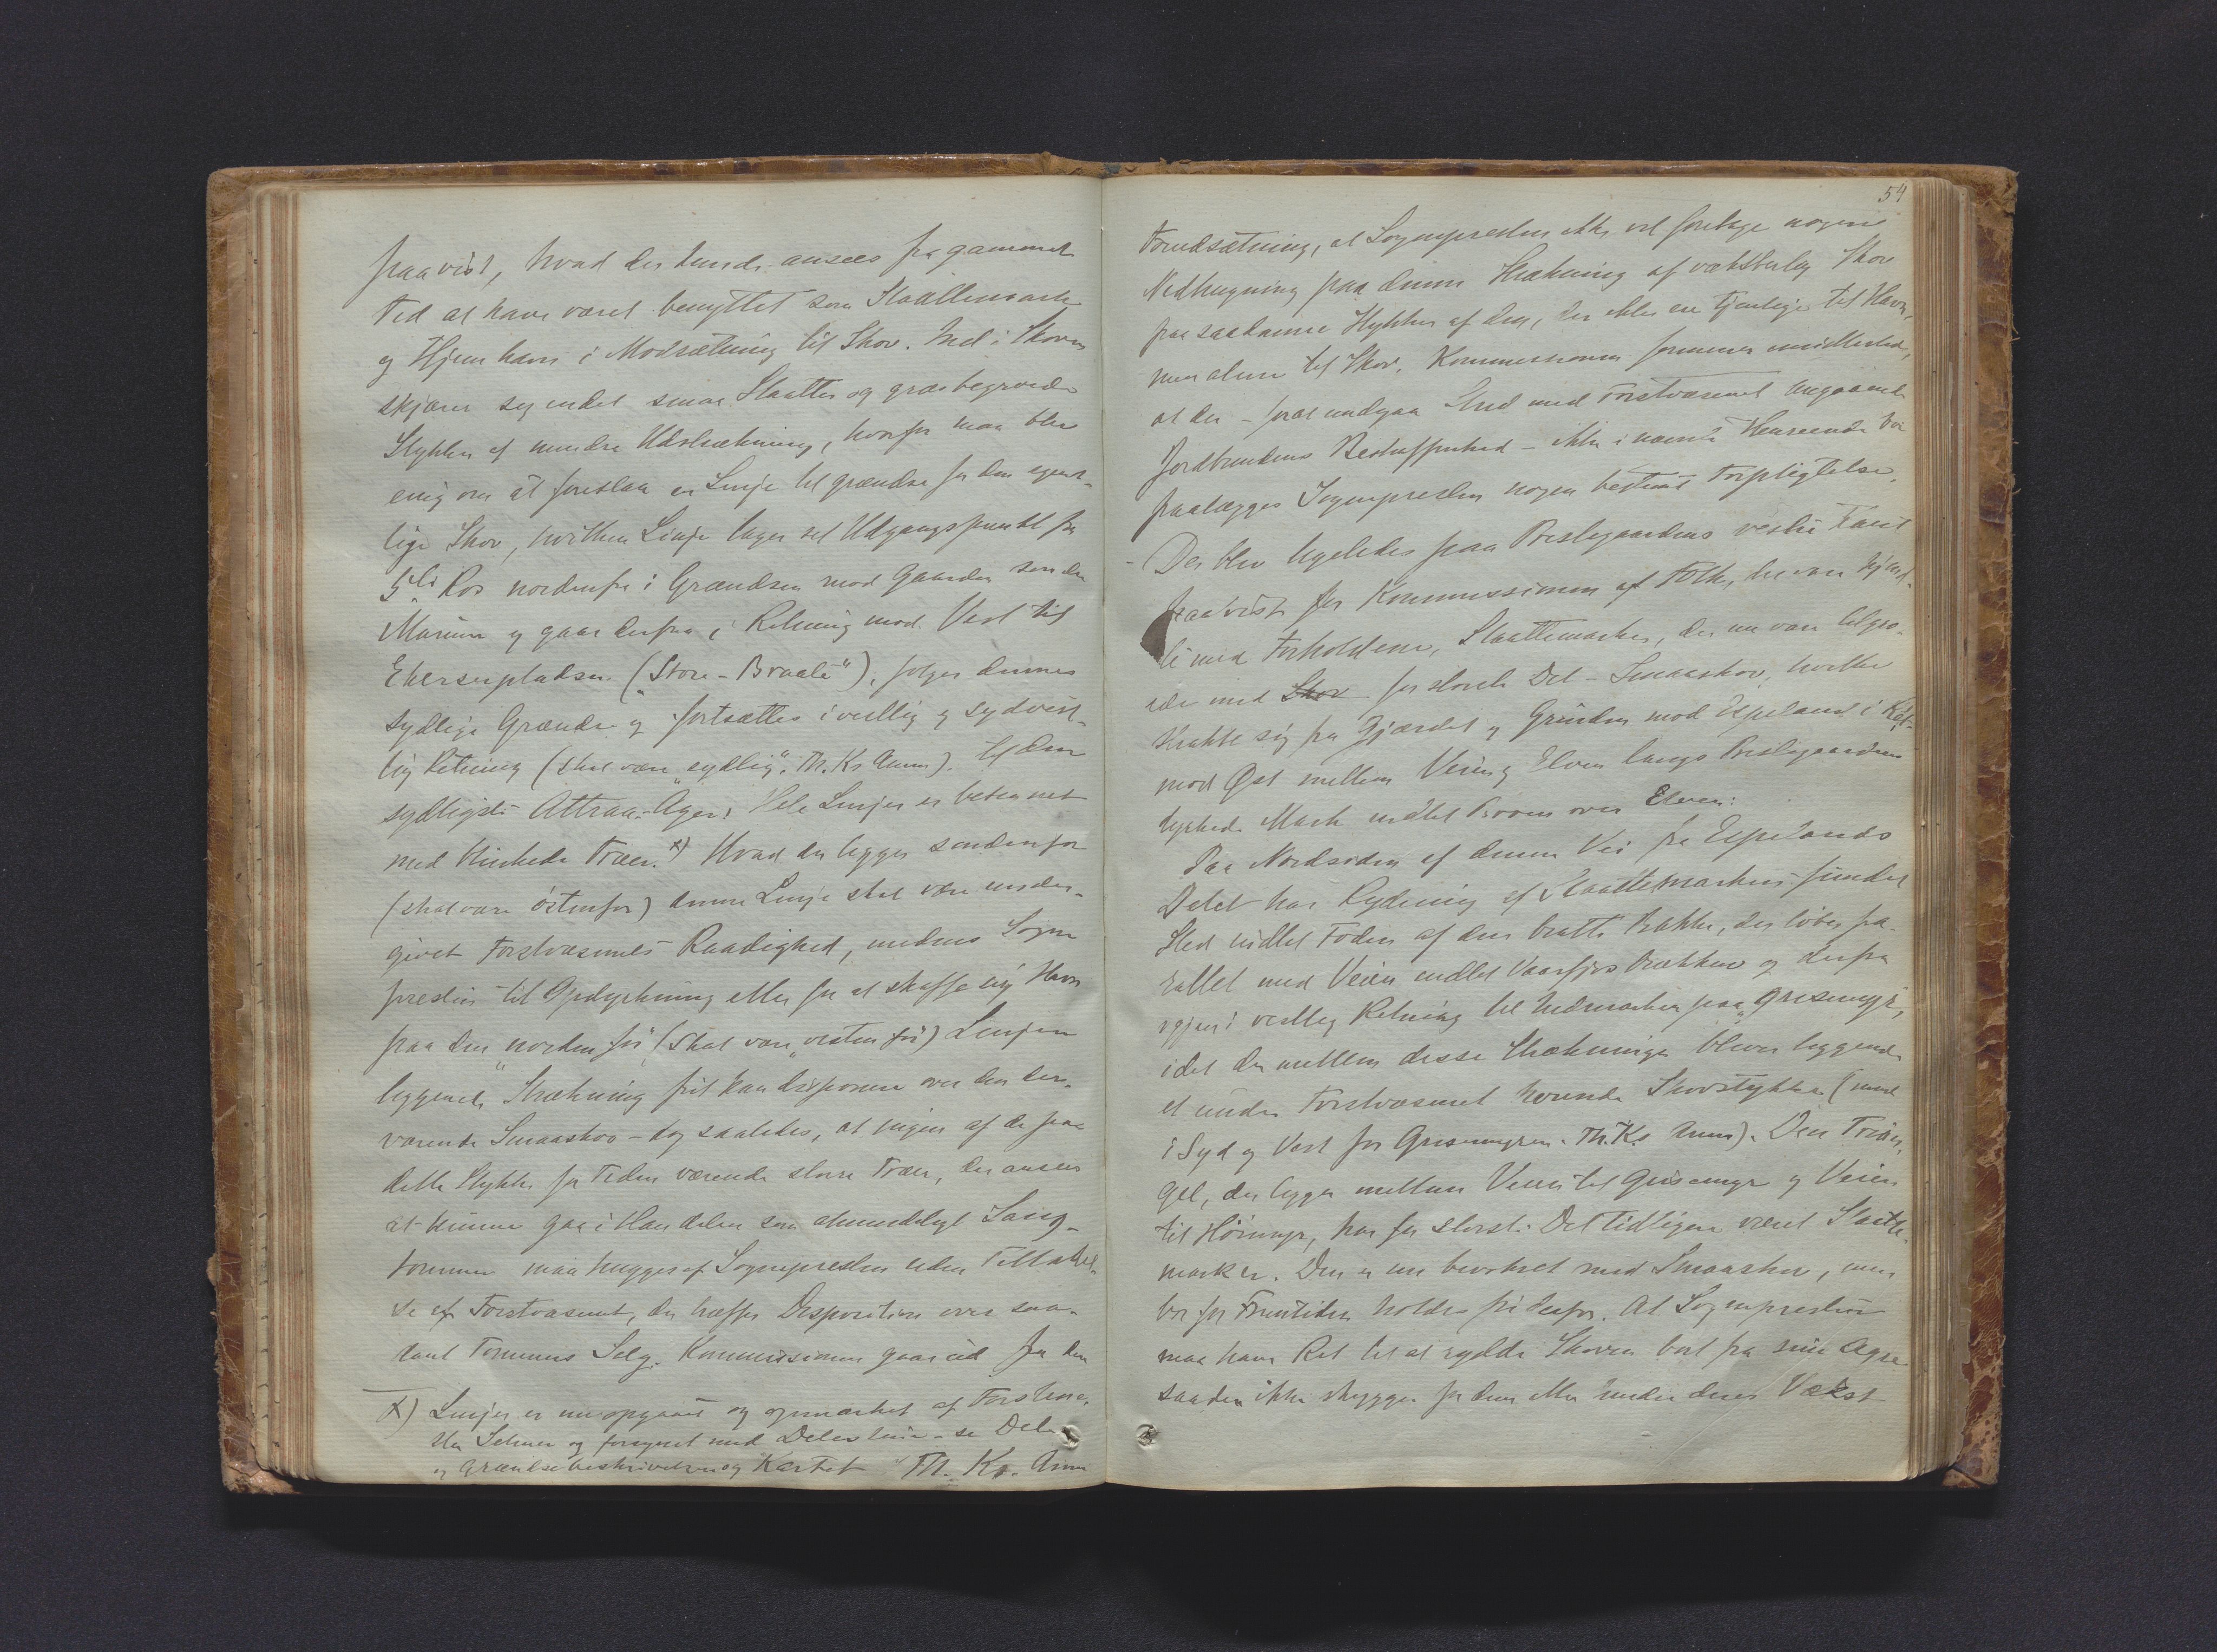 paavist, hvad der kunde ansees fra gammel
Tid at have været benyttet som Slaattemark
og Hjemhavn i Modsætning til Skov. Ind i Skoven
skjærer sig endel smaa Slaatter og græsbegroede
Stykker af mindre Udstrækning, hvorfor man blev
enig om at foreslaa en Linje til grændse for den egent-
lige Skov, hvilken Linje tager sit Udgangspunkt fra
5te Ros nordenfra i Grændsen mod Gaarden
og gaar derfra i Retning mod Vest til
Ekerserpladsen ("Store-Braate"), følger dennes
sydlige Grændse og fortsættes i vestlig og sydvest-
lig Retning (skal være "sydlig". Th. Ks Anm). til den
sydligste Attraa-Ager. Hele Linjen er betegnet
med blinkede Træer. x) Hvad der ligger søndenfor
(skal være østenfor) denne Linje skal være under-
givet Forstvæsenets Raadighed, medens Sogne-
presten til Opdyrkning eller for at skaffe sig Havn
paa den "nordenfor" (skal være "vestenfor") Linjen
liggende Strækning frit kan disponere over den der-
værende Smaaskov - dog saaledes, at ingen af de paa
dette Stykke for Tiden værende større Træer, der ansees
at kunne gaa i Handelen som almindeligt Saug-
tømmer maa hugges af Sognepresten uden Tilladel-
se af Forstvæsenet, der træffer Disposition over saa-
dant Tømmers Salg. Kommissionen gaar ud fra den
x) Linjen er nu opgaaet og opmærket af Forstme-
ster Selmer og forsynet med Delestene - se Dele
og Grændsebeskrivelsen og Kartet Th. Ks. Anm
54
Forudsætning, at Sognepresten ikke vil foretage nogen
Nedhugning paa denne Strækning af vækstlig Skov
paa saadanne Stykker af den, der ikke ere tjenlige til Havn,
men alene til Skov. Kommissionen formener imidlertid,
at der - for at undgaa Strid med Forstvæsenet angaaende
Jordbundens Beskaffenhed - ikke i nævnte Henseende bør
paalægges Sognepresten nogen bestemt Forpligtelse.
- Der blev ligeledes paa Prestegaardens vestre Kant
paavist for Kommissionen af Folk, der vare kjend-
te med Forholdene, Slaattemarker, der nu vare tilgro-
ede med Skov for største Del - Smaaskov, hvilke
strakte sig fra Gjærdet og Grinden mod Espeland i Ret-
mod Øst mellem Veien og Elven langs Prestegaardens
dyrkede Mark indtil Broen over Elven.
Paa Nordsiden af denne Vei fra Espelands
Delet har Rydning af Slaattemarken fundet
Sted indtil Foden af den bratte Bakke, der løber pa-
rallel med Veien indtil Vaarfjøs bækken og derfra
igjen i vestlig Retning til Indmarken paa "Grisemyr",
idet der mellem disse Strækninger bliver liggende
et under Forstvæsenet hørende Skovstykke (ind
i Syd og Vest for Grisemyren. Th. Ks Anm). Den Trian-
gel, der ligger mellem Veien til Grisemyr og Veien
til Hørmyr, har for største Del tidligere været Slaatte-
marker. Den er nu bevokset med Smaaskov, men
bør for Fremtiden holdes fri derfor. At Sognepresten
maa have Ret til at rydde Skoven bort fra sine Agre
saa den ikke skygger for dem eller hindre deres Vækst